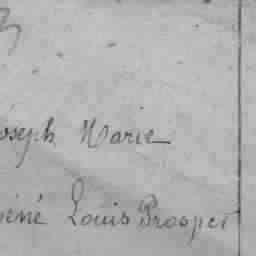 Joseph Marie
René Louis Prosper